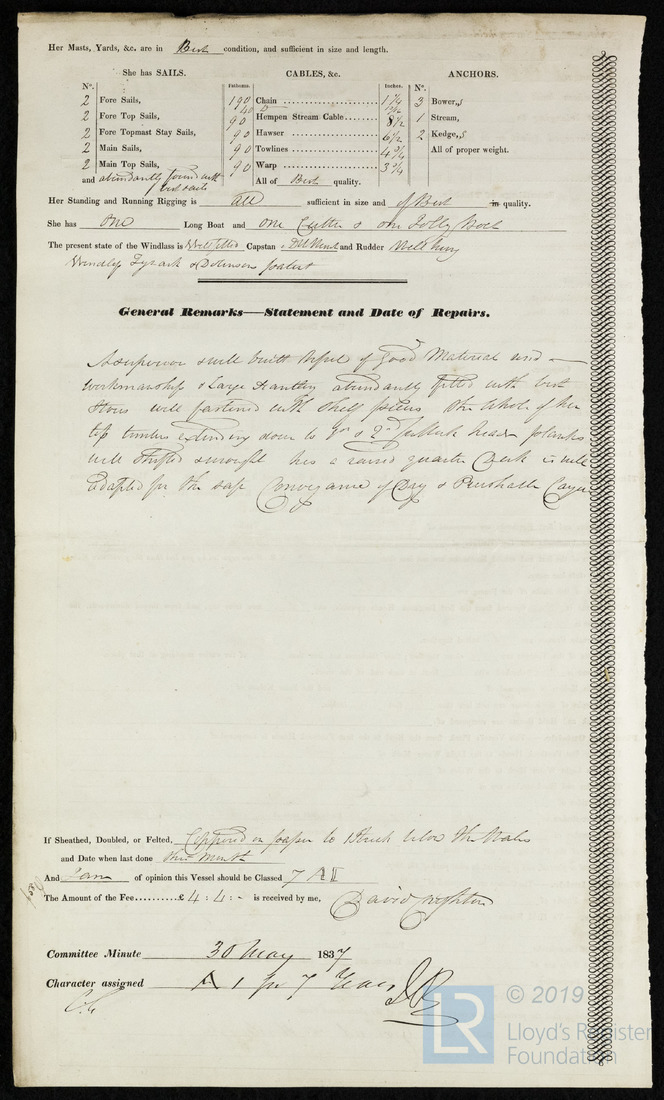 Her Masts, Yards, &c. are in Best condition, and sufficient in size and length.
She has SAILS. CABLES, &c. ANCHORS.
No. Fathoms. Inches. No.
2 Fore Sails, 190 Chain 1 1/4 3 Bower,s
2 Fore Top Sails, 90 Hempen Stream Cable 8 1/2 1 Stream,
2 Fore Topmast Stay Sails, 90 Hawser 6 1/2 2 Kedge,s
2 Main Sails, 90 Towlines 4 3/4 All of proper weight.
2 Main Top Sails, 90 Warp 3 3/4
and abundantly found with best sails All of Best quality.
Her Standing and Running Rigging is all sufficient in size and of Best in quality.
She has One Long Boat and one Cutter & one Jolly Boat
The present state of the Windlass is Well fitted Capstan and Rudder Well hung
Windlass patent
General Remarks—Statement and Date of Repairs.
A superior & well built Vessel of Good Material and
workmanship & Large Scantling abundantly fitted with best
Stores well fastened with Shelf pieces the Whole of her
top timbers extending down to 1st & 2nd futtock heads planks
well shifted & wrought has a raised quarter Deck is well
adapted for the safe Conveyance of Dry & Perishable Cargoes
If Sheathed, Doubled, or Felted, Coppered on paper to 1 Strake below the Wales
and Date when last done this Month
And I am of opinion this Vessel should be Classed 7 A1
The Amount of the Fee £ 4 : 4 : - is received by me, David Crighton
Committee Minute 30 May 1837
Character assigned A 1 for 7 Years
LR © 2019
Lloyd's Register
Foundation